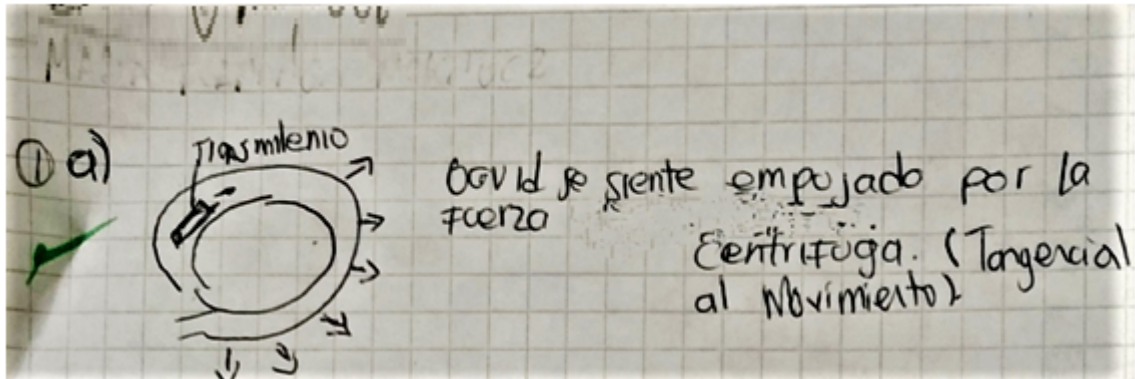 ① a)
Trasmilenio
David se siente empujado por la
fuerza
Centrifuga. (Tangencial
al Movimiento)